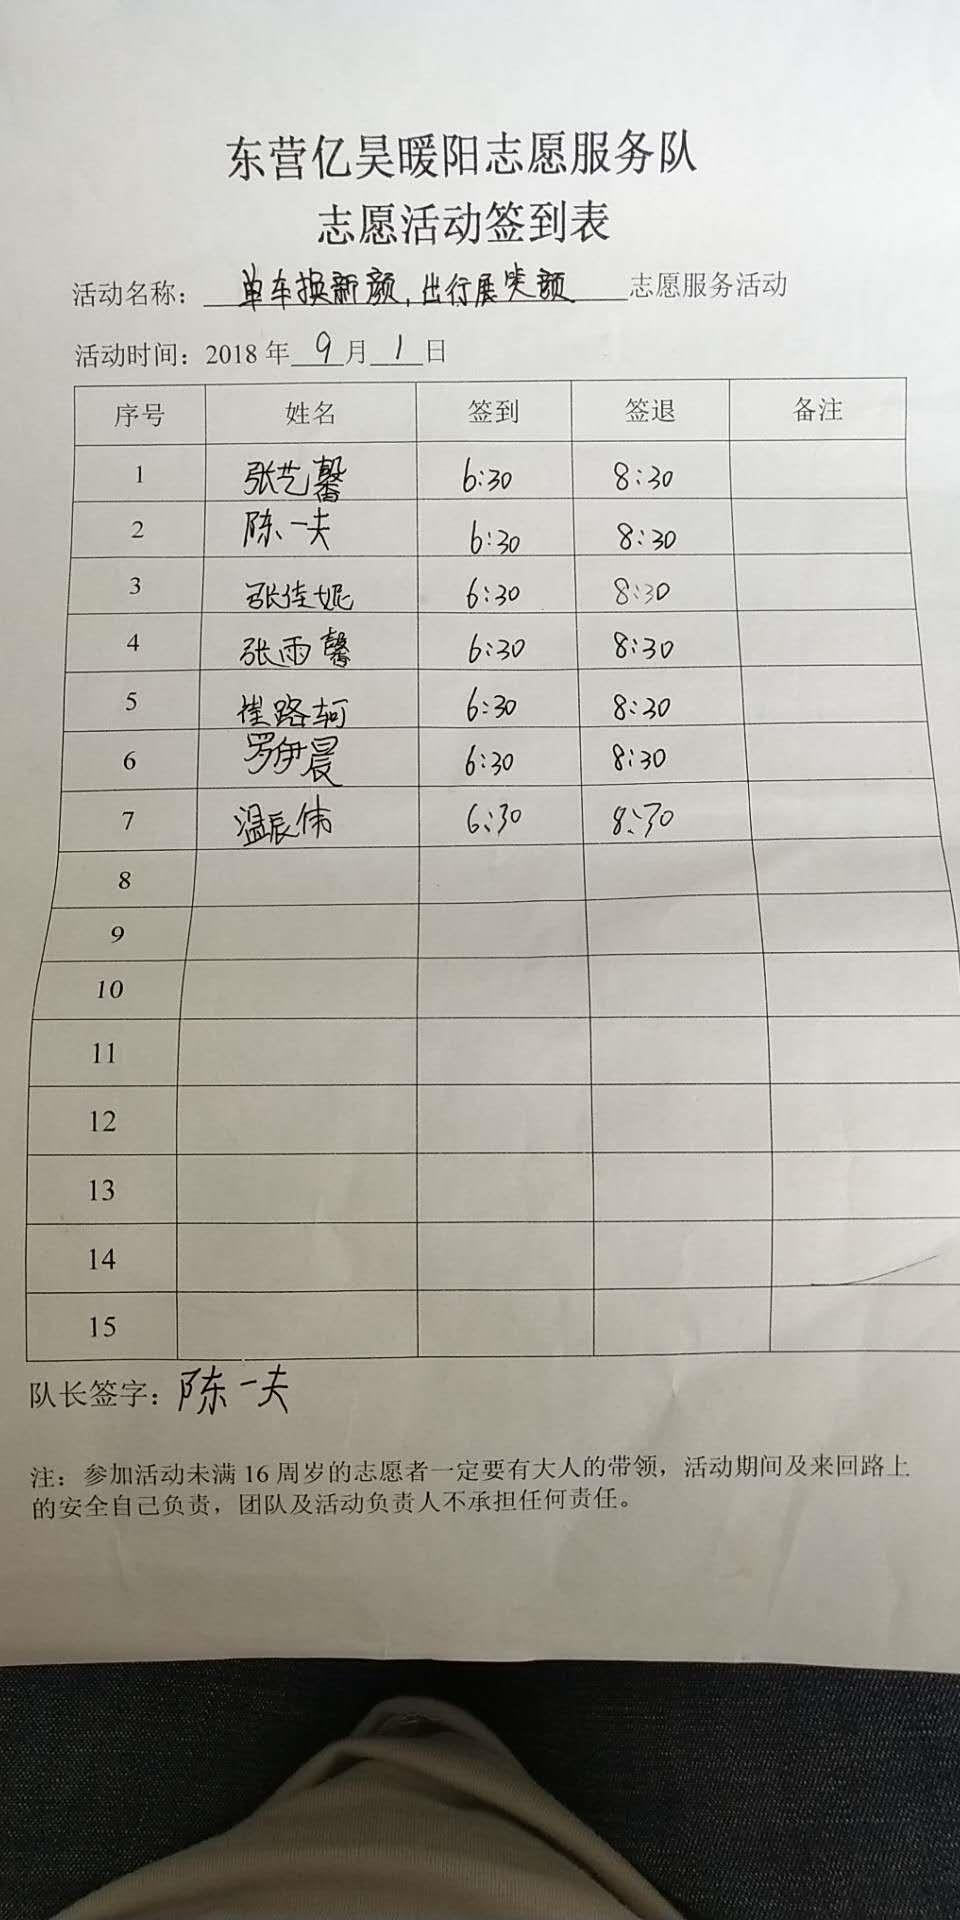 东营亿昊暖阳志愿服务队
志愿活动签到表
活动名称：单车换新颜，出行展笑颜志愿服务活动
活动时间：2018年9月1日
序号 姓名 签到 签退 备注
1 张艺馨 6:30 8:30
2 陈一夫 6:30 8:30
3 张佳妮 6:30 8:30
4 张雨馨 6:30 8:30
5 崔路轲 6:30 8:30
6 罗伊晨 6:30 8:30
7 温辰伟 6:30 8:30
8
9
10
11
12
13
14
15
队长签字：陈一夫
注：参加活动未满16周岁的志愿者一定要有大人的带领，活动期间及来回路上
的安全自己负责，团队及活动负责人不承担任何责任。